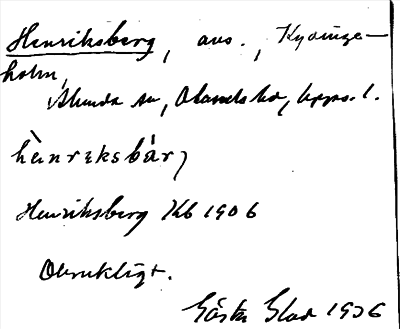 Henriksberg, avs., Kydinge-
holm,
Alunda sn, Olands hd, Upps. l.
hènrɩksbár,
Henriksberg Kb 1906
Obrukligt.
Gösta Glad 1936